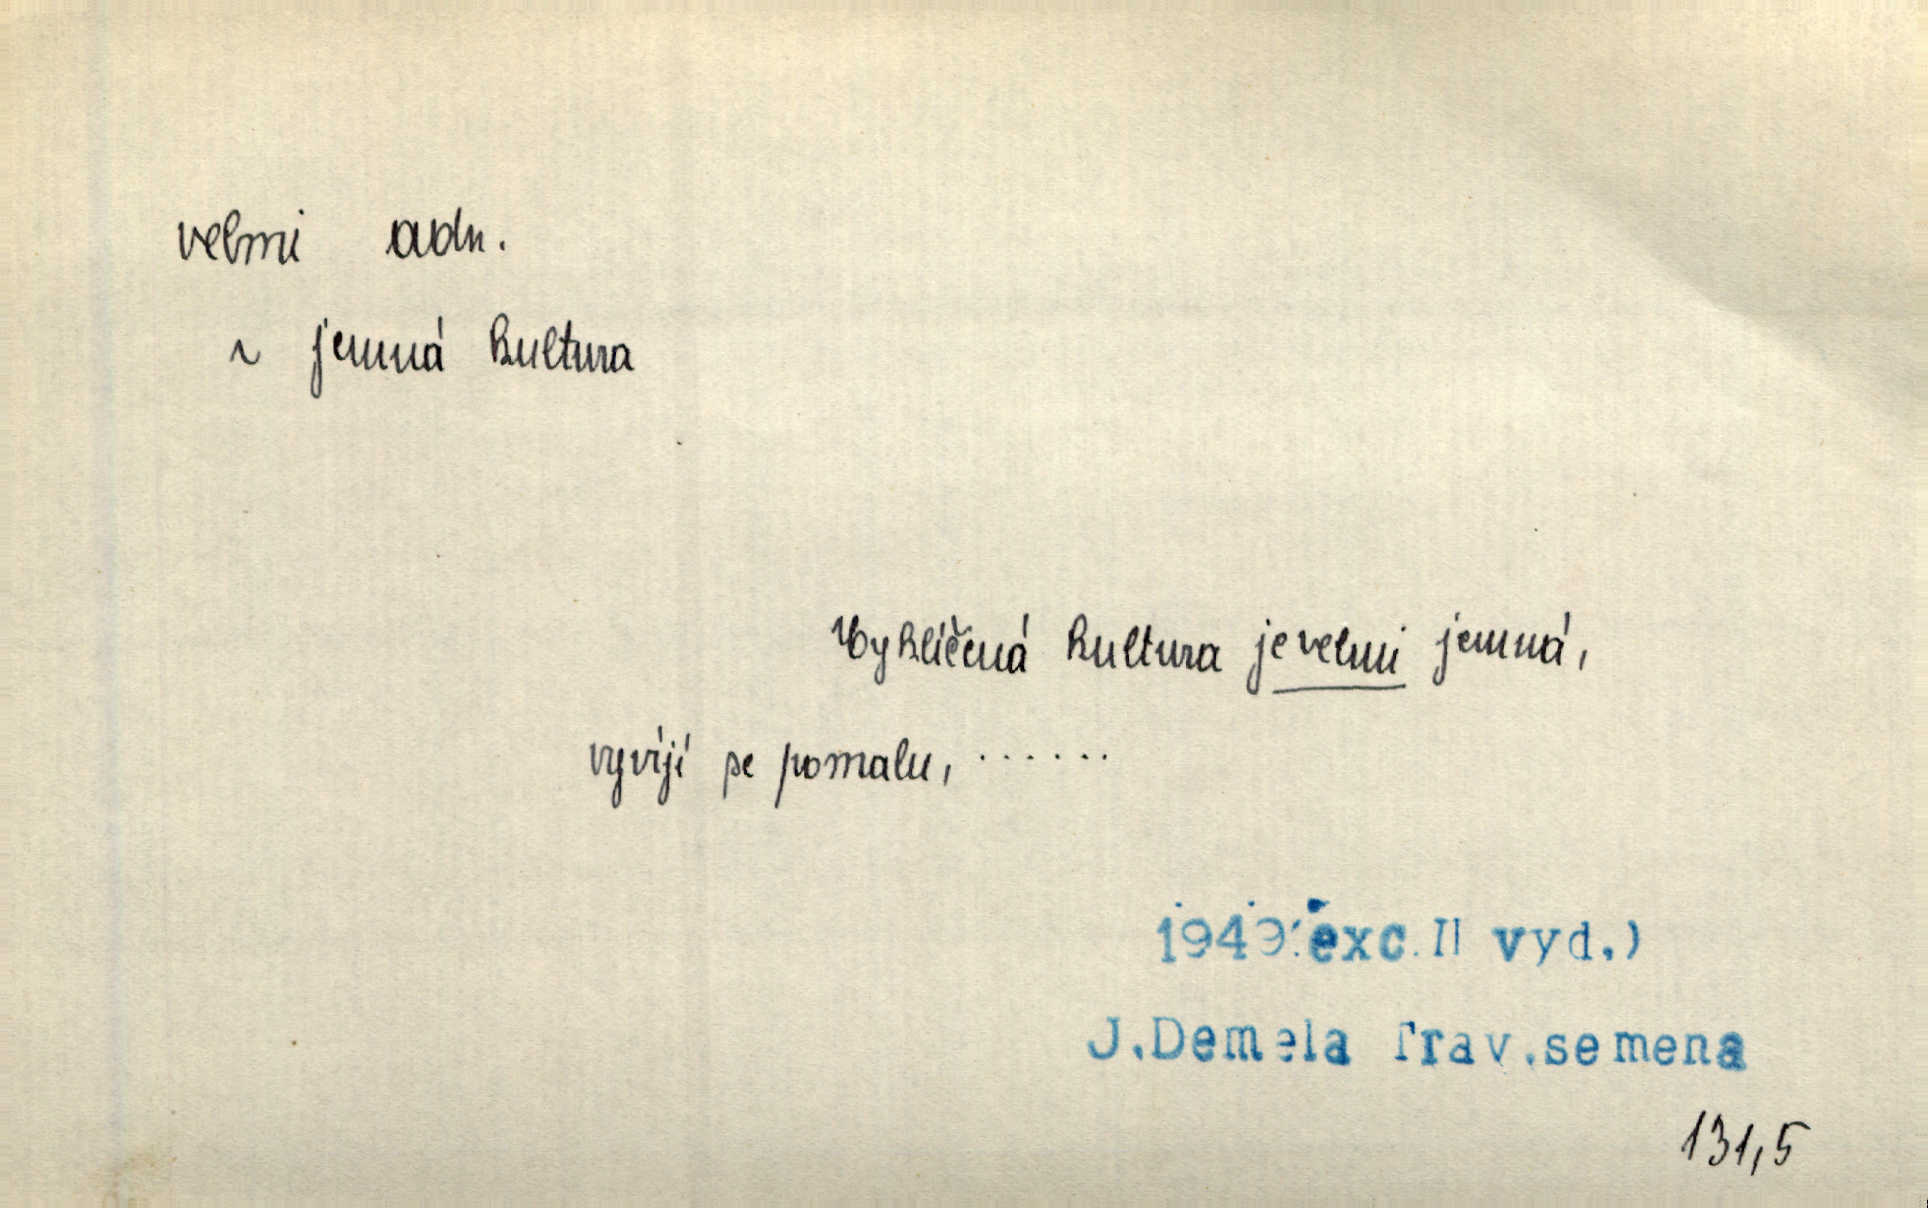 velmi adv.
~ jemná kultura
Vyklíčená kultura je velmi jemná,
vyvíjí se pomalu, ......
1949(exc.II vyd.)
J.Demela Trav.semena
131,5